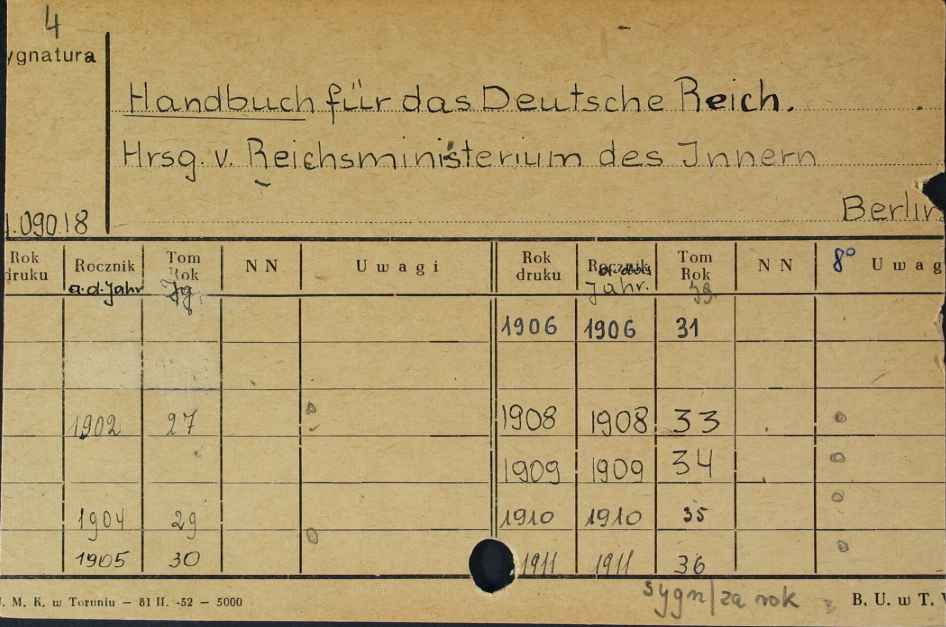 4
ygnatura
Handbuch für das Deutsche Reich.
Hrsg. v. Reichsministerium des Innern
Berlin
.09018
Rok druku Rocznik Tom Rok N N Uwagi Rok druku Rocznik Tom Rok N N 8° Uwag
a.d. Jahr Jg. a.d. Jahr. Jg.
1906 1906 31
1902 27 1908 1908 33
1909 1909 34
1904 29 1910 1910 35
1905 30 1911 1911 36
sygn/za rok
. M. K. w Toruniu — 81 II. -52 — 5000 B. U. w T.